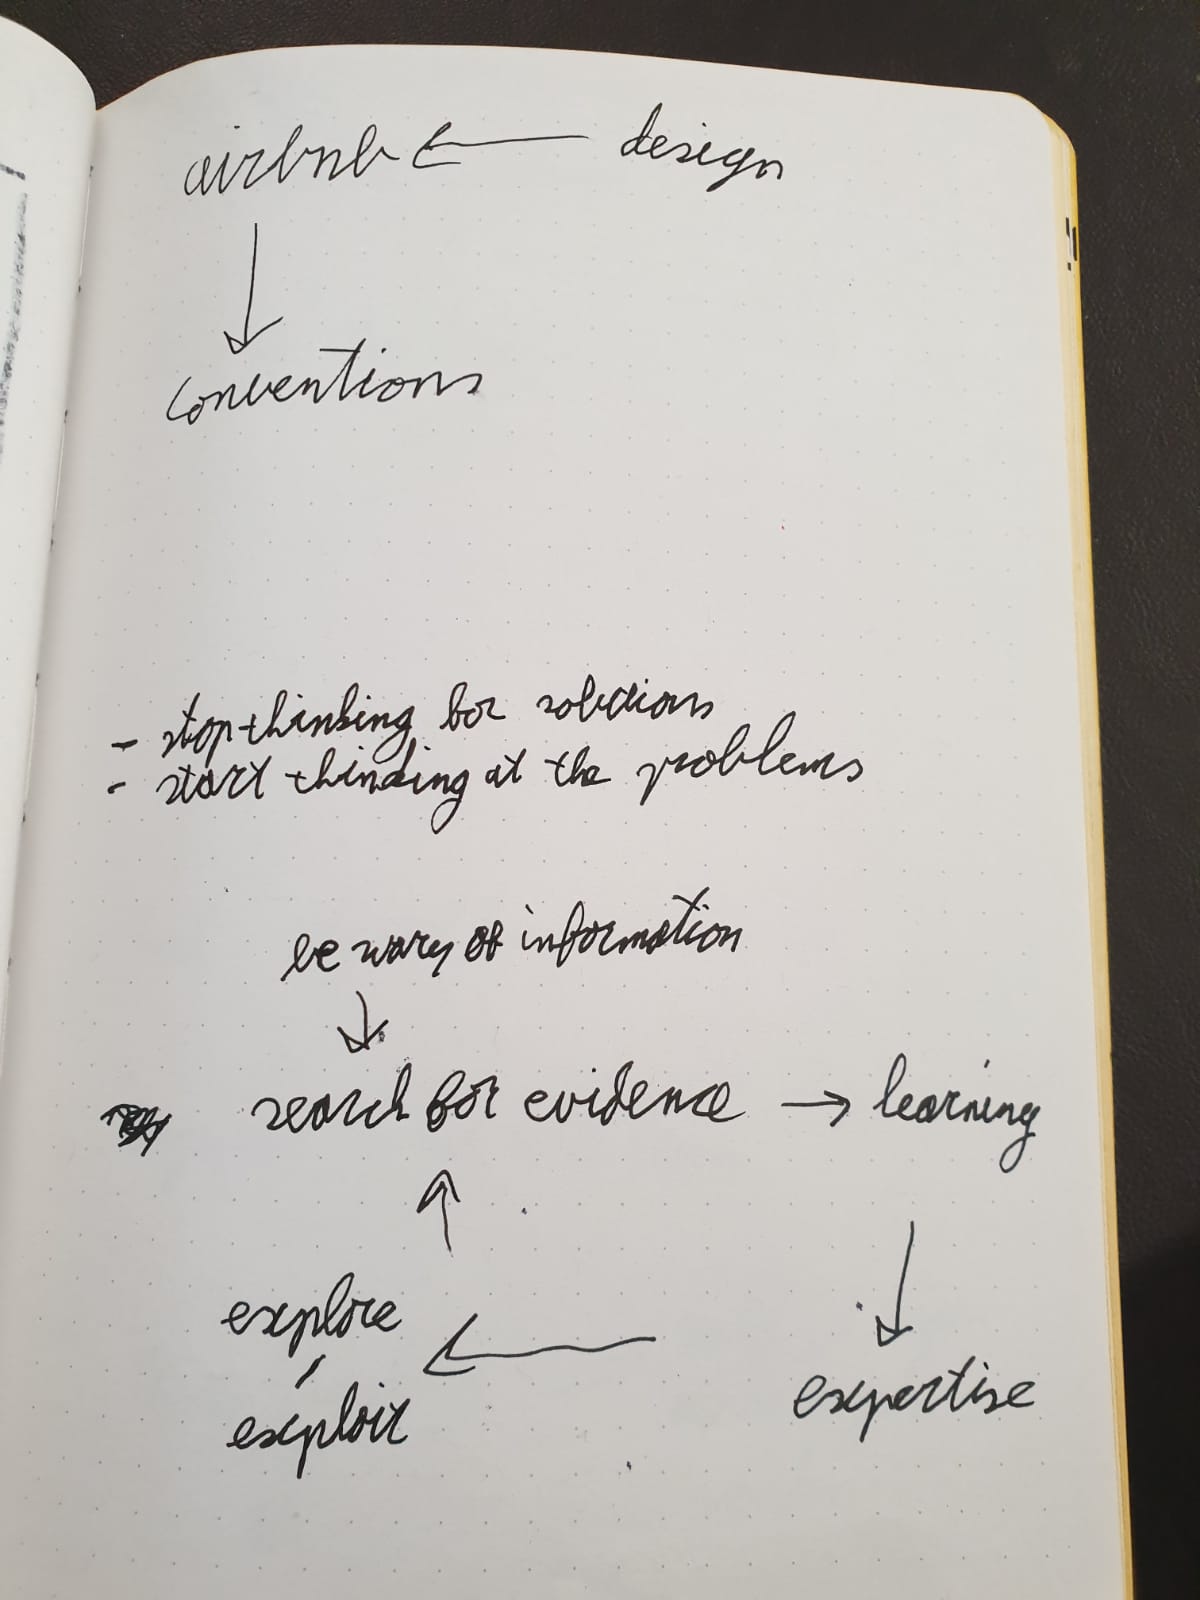 airbnb ← design
↓
conventions
- stop thinking for solutions
- start thinking at the problems
be wary of information
↓
search for evidence → learning
↑ ↓
explore
/ ←
exploit expertise